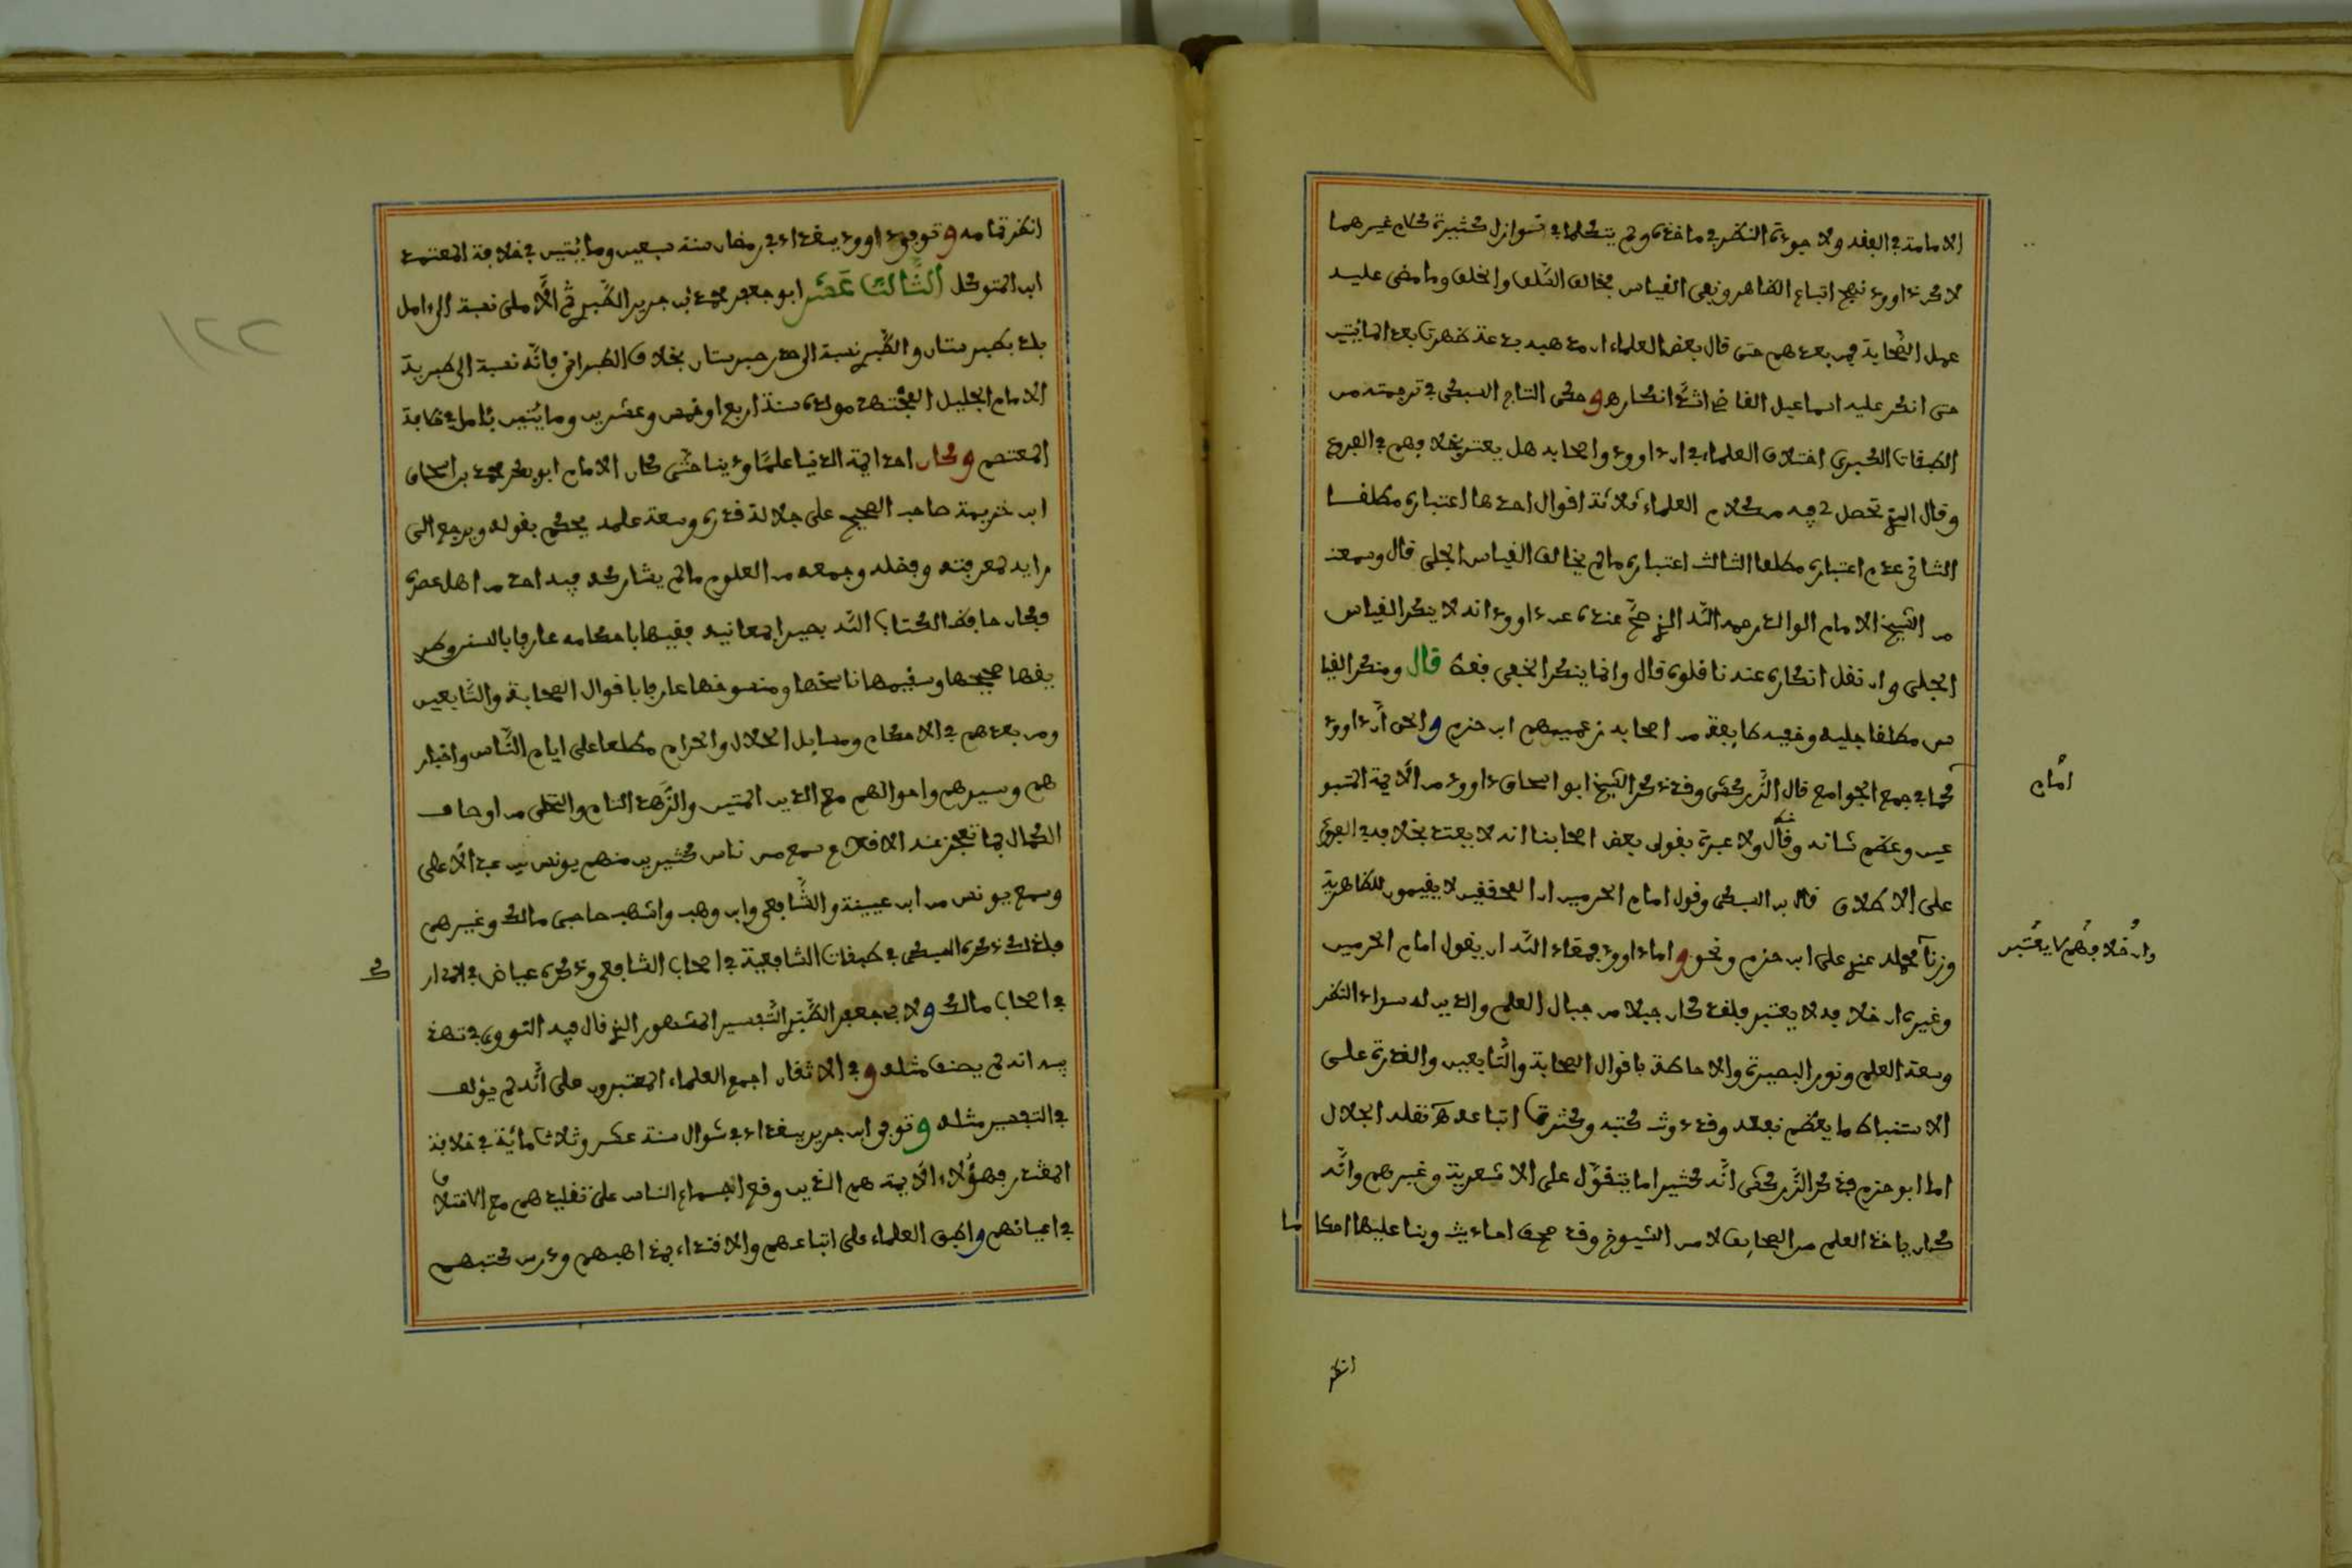 الامامة في الفقه ولا جودة النظر في ماخذه ولم يتكلما في نوازل كثيرة كلام غيرهما
لاكن داود نهج اتباع الظاهر ونفى القياس فخالف السّلف والخلف وما مضى عليه
عمل الصّحابة فمن بعدهم حتى قال بعض العلماء ان مذهبه بدعة ظهرت بعد المائتين
حتى انكر عليه اسماعيل القاضي اشدّ انكاره وحكى التاج السبكي في ترجمته من
الطبقات الكبرى اختلاف العلماء في ان داوود واصحابه هل يعتبر بخلافهم في الفروع
وقال الذي تحصل فيه من كلام العلماء ثلاثة اقوال احدها اعتباره مطلقا
الثاني عدم اعتباره مطلقا الثالث اعتباره ما لم يخالف القياس الجلي قال وسمعت
من الشيخ الامام الوالد رحمه الله الذي صحّ عنده عن داوود انه لا ينكر القياس
الجلي وان نقل انكاره عنه ناقلون قال وانما ينكر الخفي فقط قال ومنكر القيا
س مطلقا جليه وخفيه طايفة من اصحابه زعيمهم ابن حزم والحق أنّ داوود
امام
كما في جمع الجوامع قال الزّركشي وقد ذكر الشيخ ابو اسحاق داوود من الأيمة المتبو
عين وعظم شانه وقال ولا عبرة بقول بعض اصحابنا انه لا يعتد بخلافه في الفروع
على الاطلاق قال ابن السبكي وقول امام الحرمين ان المحققين لا يقيمون للظاهرية
وان خلافهم لا يعتبر
وزنا محمله عندي على ابن حزم ونحوه واما داوود فمعاذ الله ان يقول امام الحرمين
وغيره ان خلافه لا يعتبر فلقد كان جبلا من جبال العلم والدين له سداد النظر
وسعة العلم ونور البصيرة والاحاطة باقوال الصحابة والتّابعين والقدرة على
الاستنباط ما يعظم نفعه وقد دونت كتبه وكثرت اتباعه هـ نقله الجلال
اما ابو حزم فذكر الزّركشي انّه كثيرا ما يتقوّل على الاشعرية وغيرهم وانّه
كان ياخذ العلم من الصحايف لا من الشيوخ وقد صحف احاديث وبنا عليها احكا ما
انظر
انظر تمامه وتوفي داوود ببغداد في رمضان سنة سبعين ومايتين في خلافة المعتمد
ابن المتوكل الثّالث عشر ابو جعفر محمد بن جرير الطّبري ثم الأملي نسبة الى ءامل
بلد بطبرستان والطّبري نسبة الى طبرستان بخلاف الطبراني فانّه نسبة الى طبرية
الامام الجليل المجتهد مولده سنة اربع او خمس وعشرين ومايتين بئامل في خلافة
المعتصم وكان احد ايمة الدنيا علما ودينا حتّى كان الامام ابو بكر محمد بن اسحاق
ابن خزيمة صاحب الصحيح على جلالة قدره وسعة علمه يحكم بقوله ويرجع الى
رايه لمعرفته وفضله وجمعه من العلوم ما لم يشاركه فيه احد من اهل عصره
فكان حافظا لكتاب الله بصيرا بمعانيه فقيها باحكامه عارفا بالسنن وطر
يقها صحيحها وسقيمها ناسخها ومنسوخها عارفا باقوال الصحابة والتّابعين
ومن بعدهم في الاحكام ومسايل الحلال والحرام مطلعا على ايام النّاس واخبار
هم وسيرهم واحوالهم مع الدين المتين والزّهد التام والتحلى من اوصاف
الكمال بما تعجز عنه الاقلام سمع من ناس كثيرين منهم يونس بن عبد الأعلى
وسمع يونس من ابن عيينة والشّافعي وابن وهب واشهب صاحبي مالك وغيرهم
فلذلك ذكره السبكي في طبقات الشافعية في اصحاب الشافعي وذكره عياض في المدار ك
في اصحاب مالك ولابي جعفر الطّبري التّفسير المشهور الذي قال فيه النووي في تهذ
يبه انه لم يصنف مثله وفي الاتقان اجمع العلماء المعتبرون على أنّه لم يؤلف
في التفسير مثله وتوفي ابن جرير ببغداد في شوال سنة عشر وثلاثمائة في خلافة
المقتدر فهؤلاء الأيمة هم الذين وقع اجماع الناس على تقليدهم مع الاختلاف
في اعيانهم واطبق العلماء على اتباعهم والاقتداء بمذاهبهم ودرس كتبهم
١٢٢